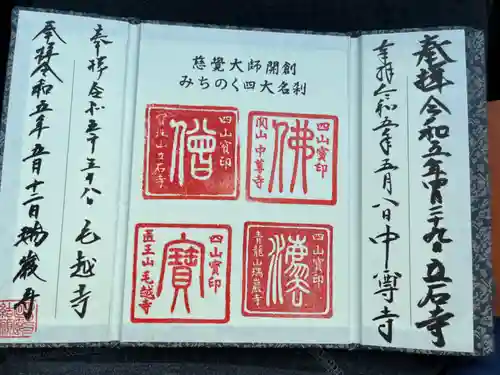 奉拝 令和五年四月二十九日 立石寺
奉拝 令和五年五月八日 中尊寺
慈覺大師開創
みちのく四大名刹
四山寳印
佛
関山 中尊寺
四山寳印
僧
寳珠山 立石寺
四山寳印
法
青龍山 瑞巌寺
四山寳印
寳
医王山 毛越寺
奉拝 令和五年 毛越寺
奉拝 令和五年五月十二日 瑞巌寺